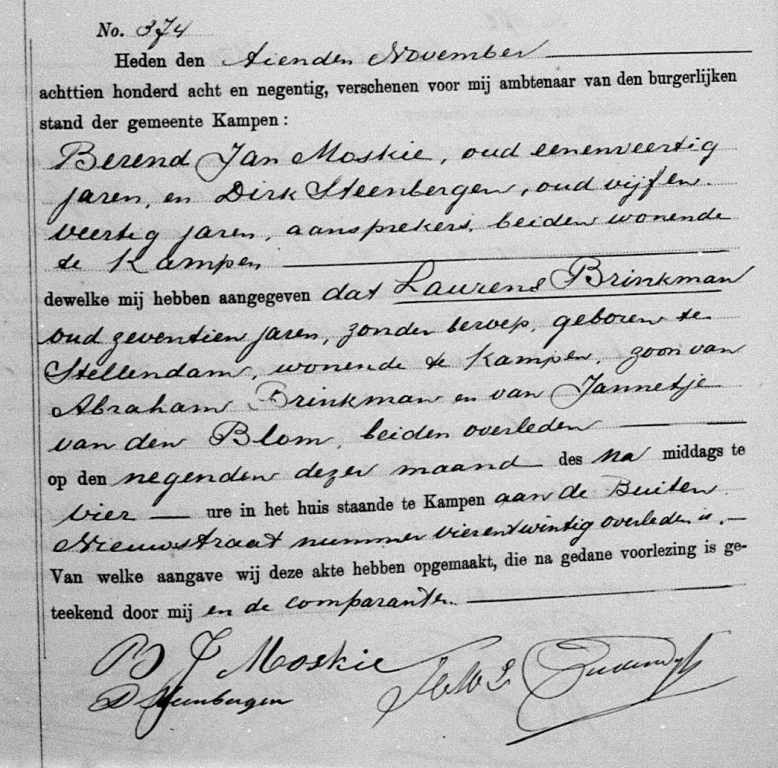 No. 374
Heden den tienden November
achttien honderd acht en negentig, verschenen voor mij ambtenaar van den burgerlijken
stand der gemeente Kampen:
Berend Jan Moskie, oud eenenveertig
jaren, en Dirk Steenbergen, oud vijf en
veertig jaren, aansprekers, beiden wonende
te Kampen
dewelke mij hebben aangegeven dat Laurens Brinkman
oud zeventien jaren, zonder beroep, geboren te
Stellendam, wonende te Kampen, zoon van
Abraham Brinkman en van Jannetje
van den Blom, beiden overleden
op den negenden dezer maand des na middags te
vier ure in het huis staande te Kampen aan de Buiten
Nieuwstraat nummer vierentwintig overleden is.
Van welke aangave wij deze akte hebben opgemaakt, die na gedane voorlezing is ge-
teekend door mij en de comparanten.
B J Moskie
D Steenbergen